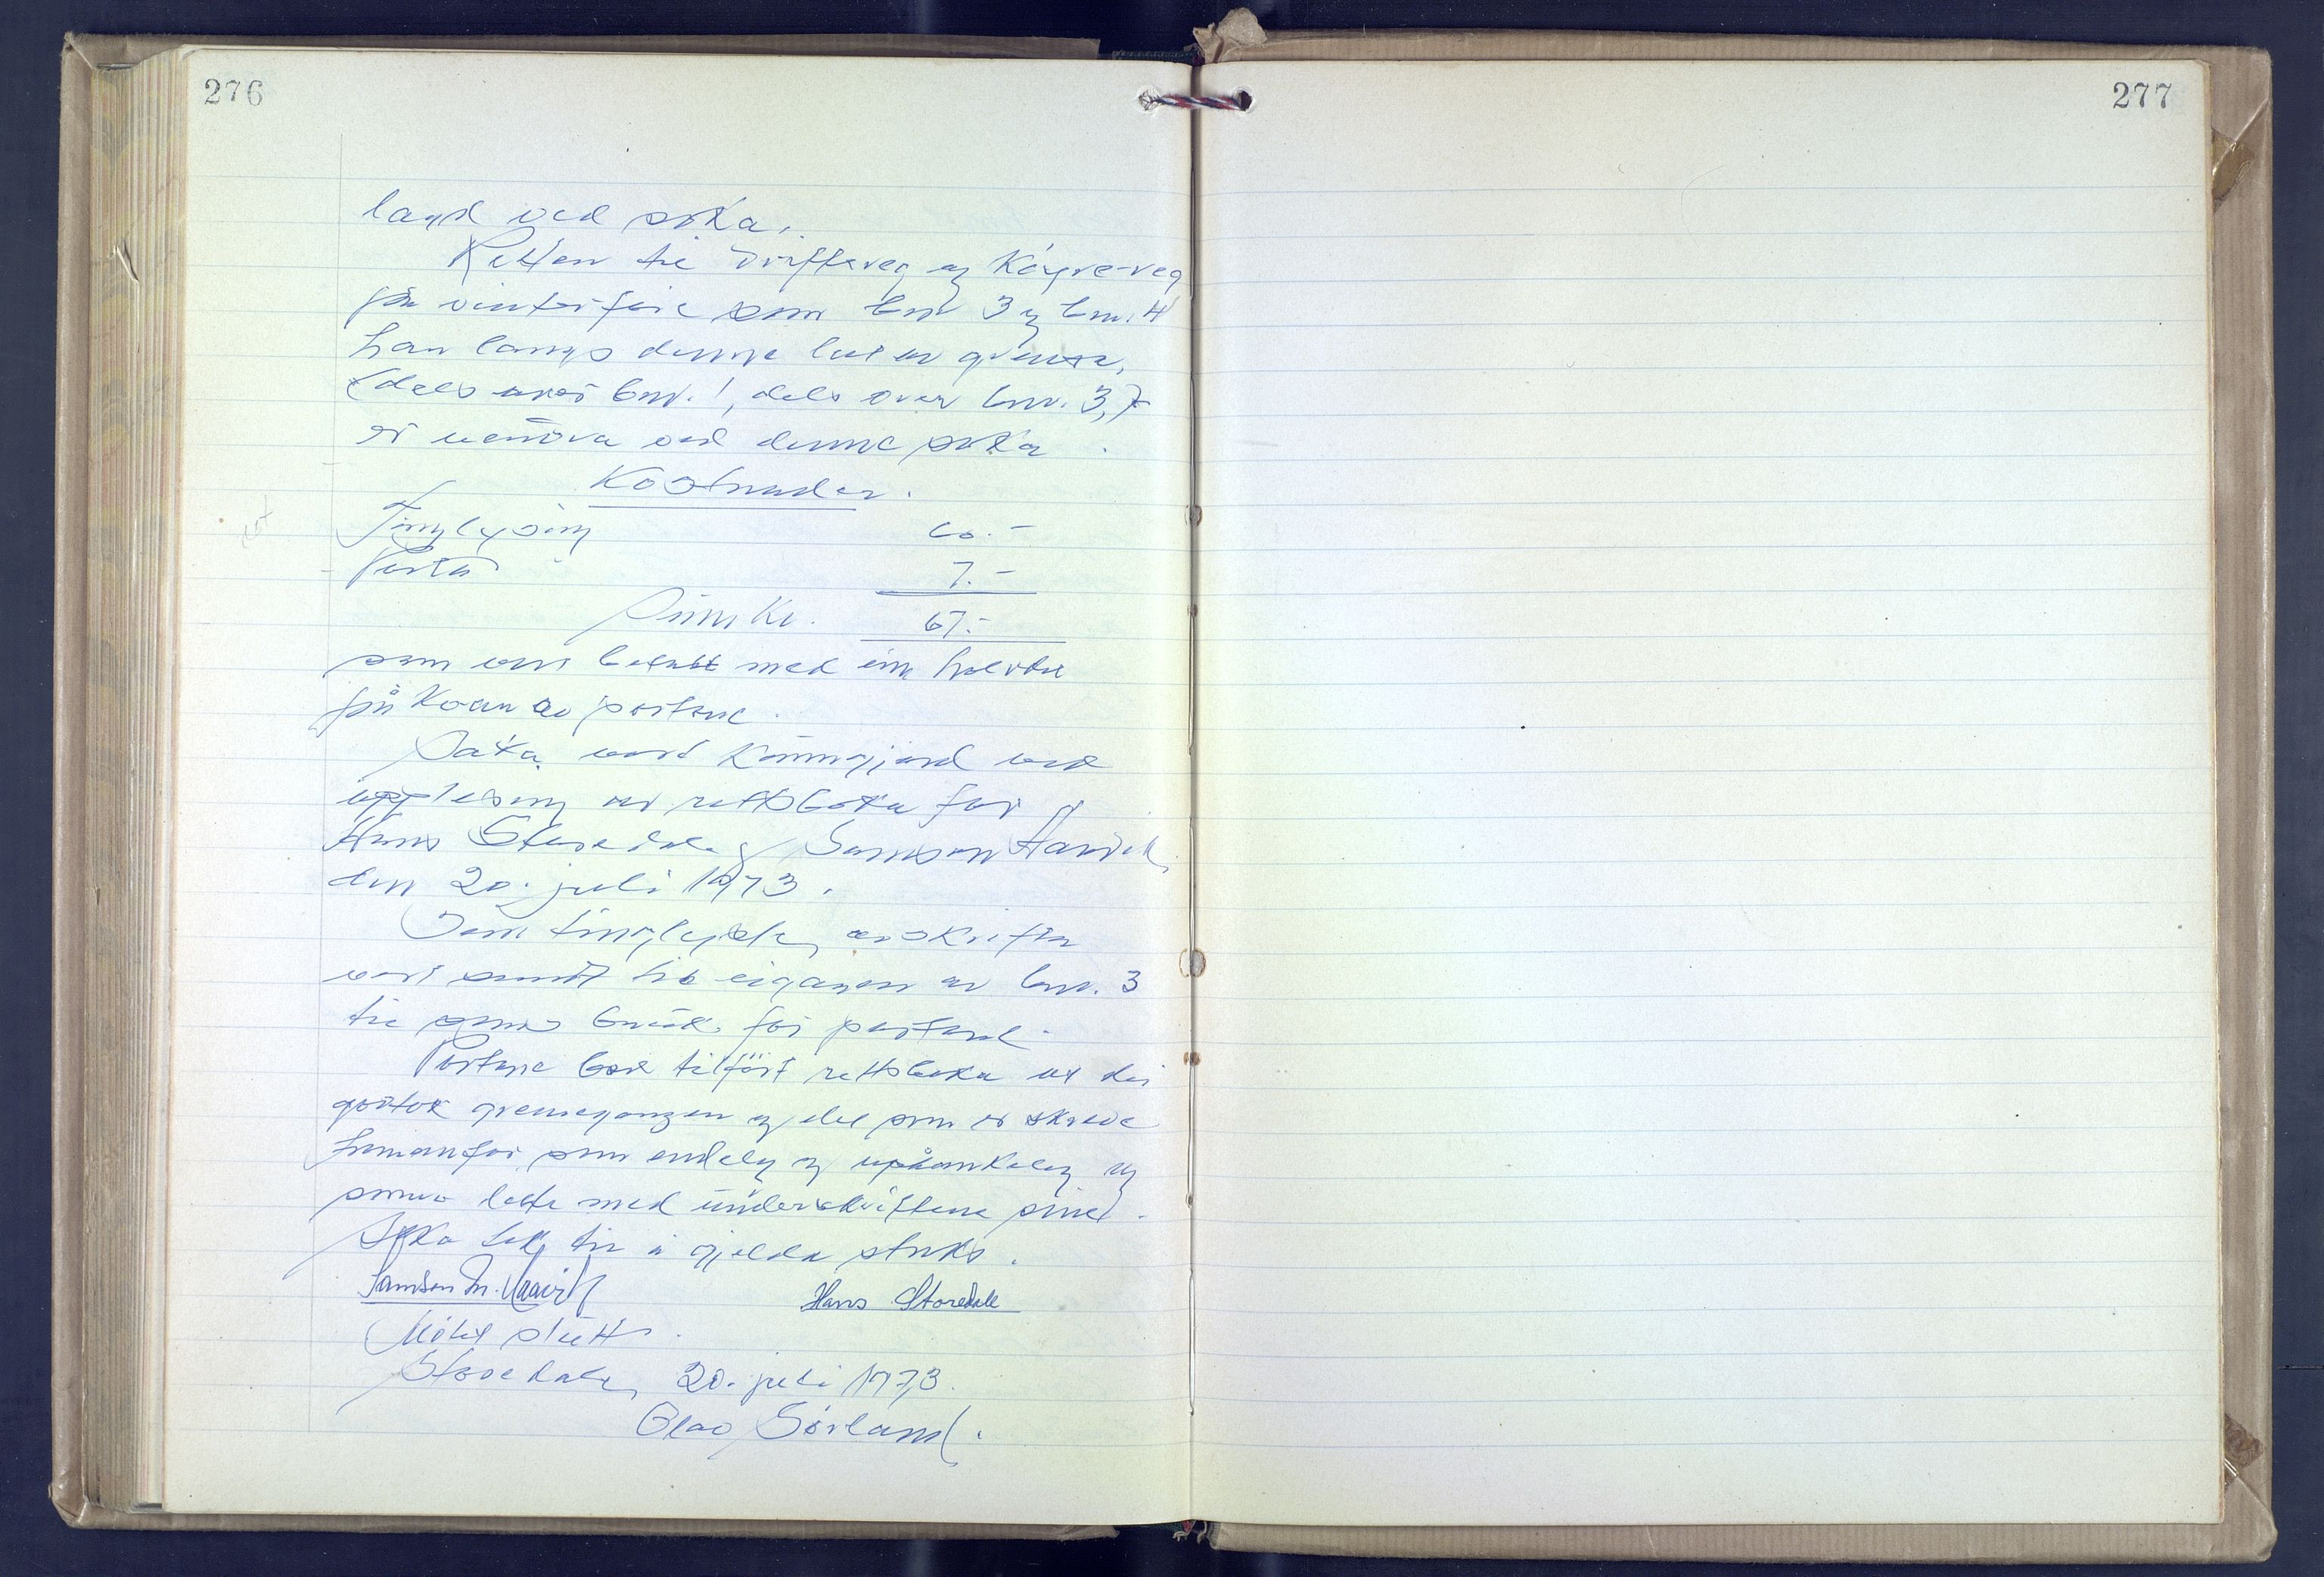 276
277
land ved saka.
Retten til driftsveg og Köyre-veg
på vinterföre som bnr 3 og bnr. 4
har langs denne lina er grensa,
(dels over bnr. 1, dels over bnr. 3,7
er uendra ved denne saka.
Kostnader.
Tinglysing 60.-
Porto 7.-
Sum Kr. 67.-
som vert betalt med ein halvdel
på kvar av partane.
Saka vart kunngjord ved
opplesing av rettsboka for
Hans Storedale og Samson Haavik
den 20. juli 1973.
Den tinglyste avskrifta
vart sendt til eigaren av bnr. 3
til sams bruk for partane.
Partane bad tilfört rettsboka at dei
godtok grensegangen og det som er skrive
framanfor som endeleg og upåankeleg og
sanna dette med underskriftene sine.
Saka tek til å gjelda straks.
Samson M. Haavik Hans Storedale
Mötet slutt.
Storedale, 20. juli 1973.
Olav Sörland.